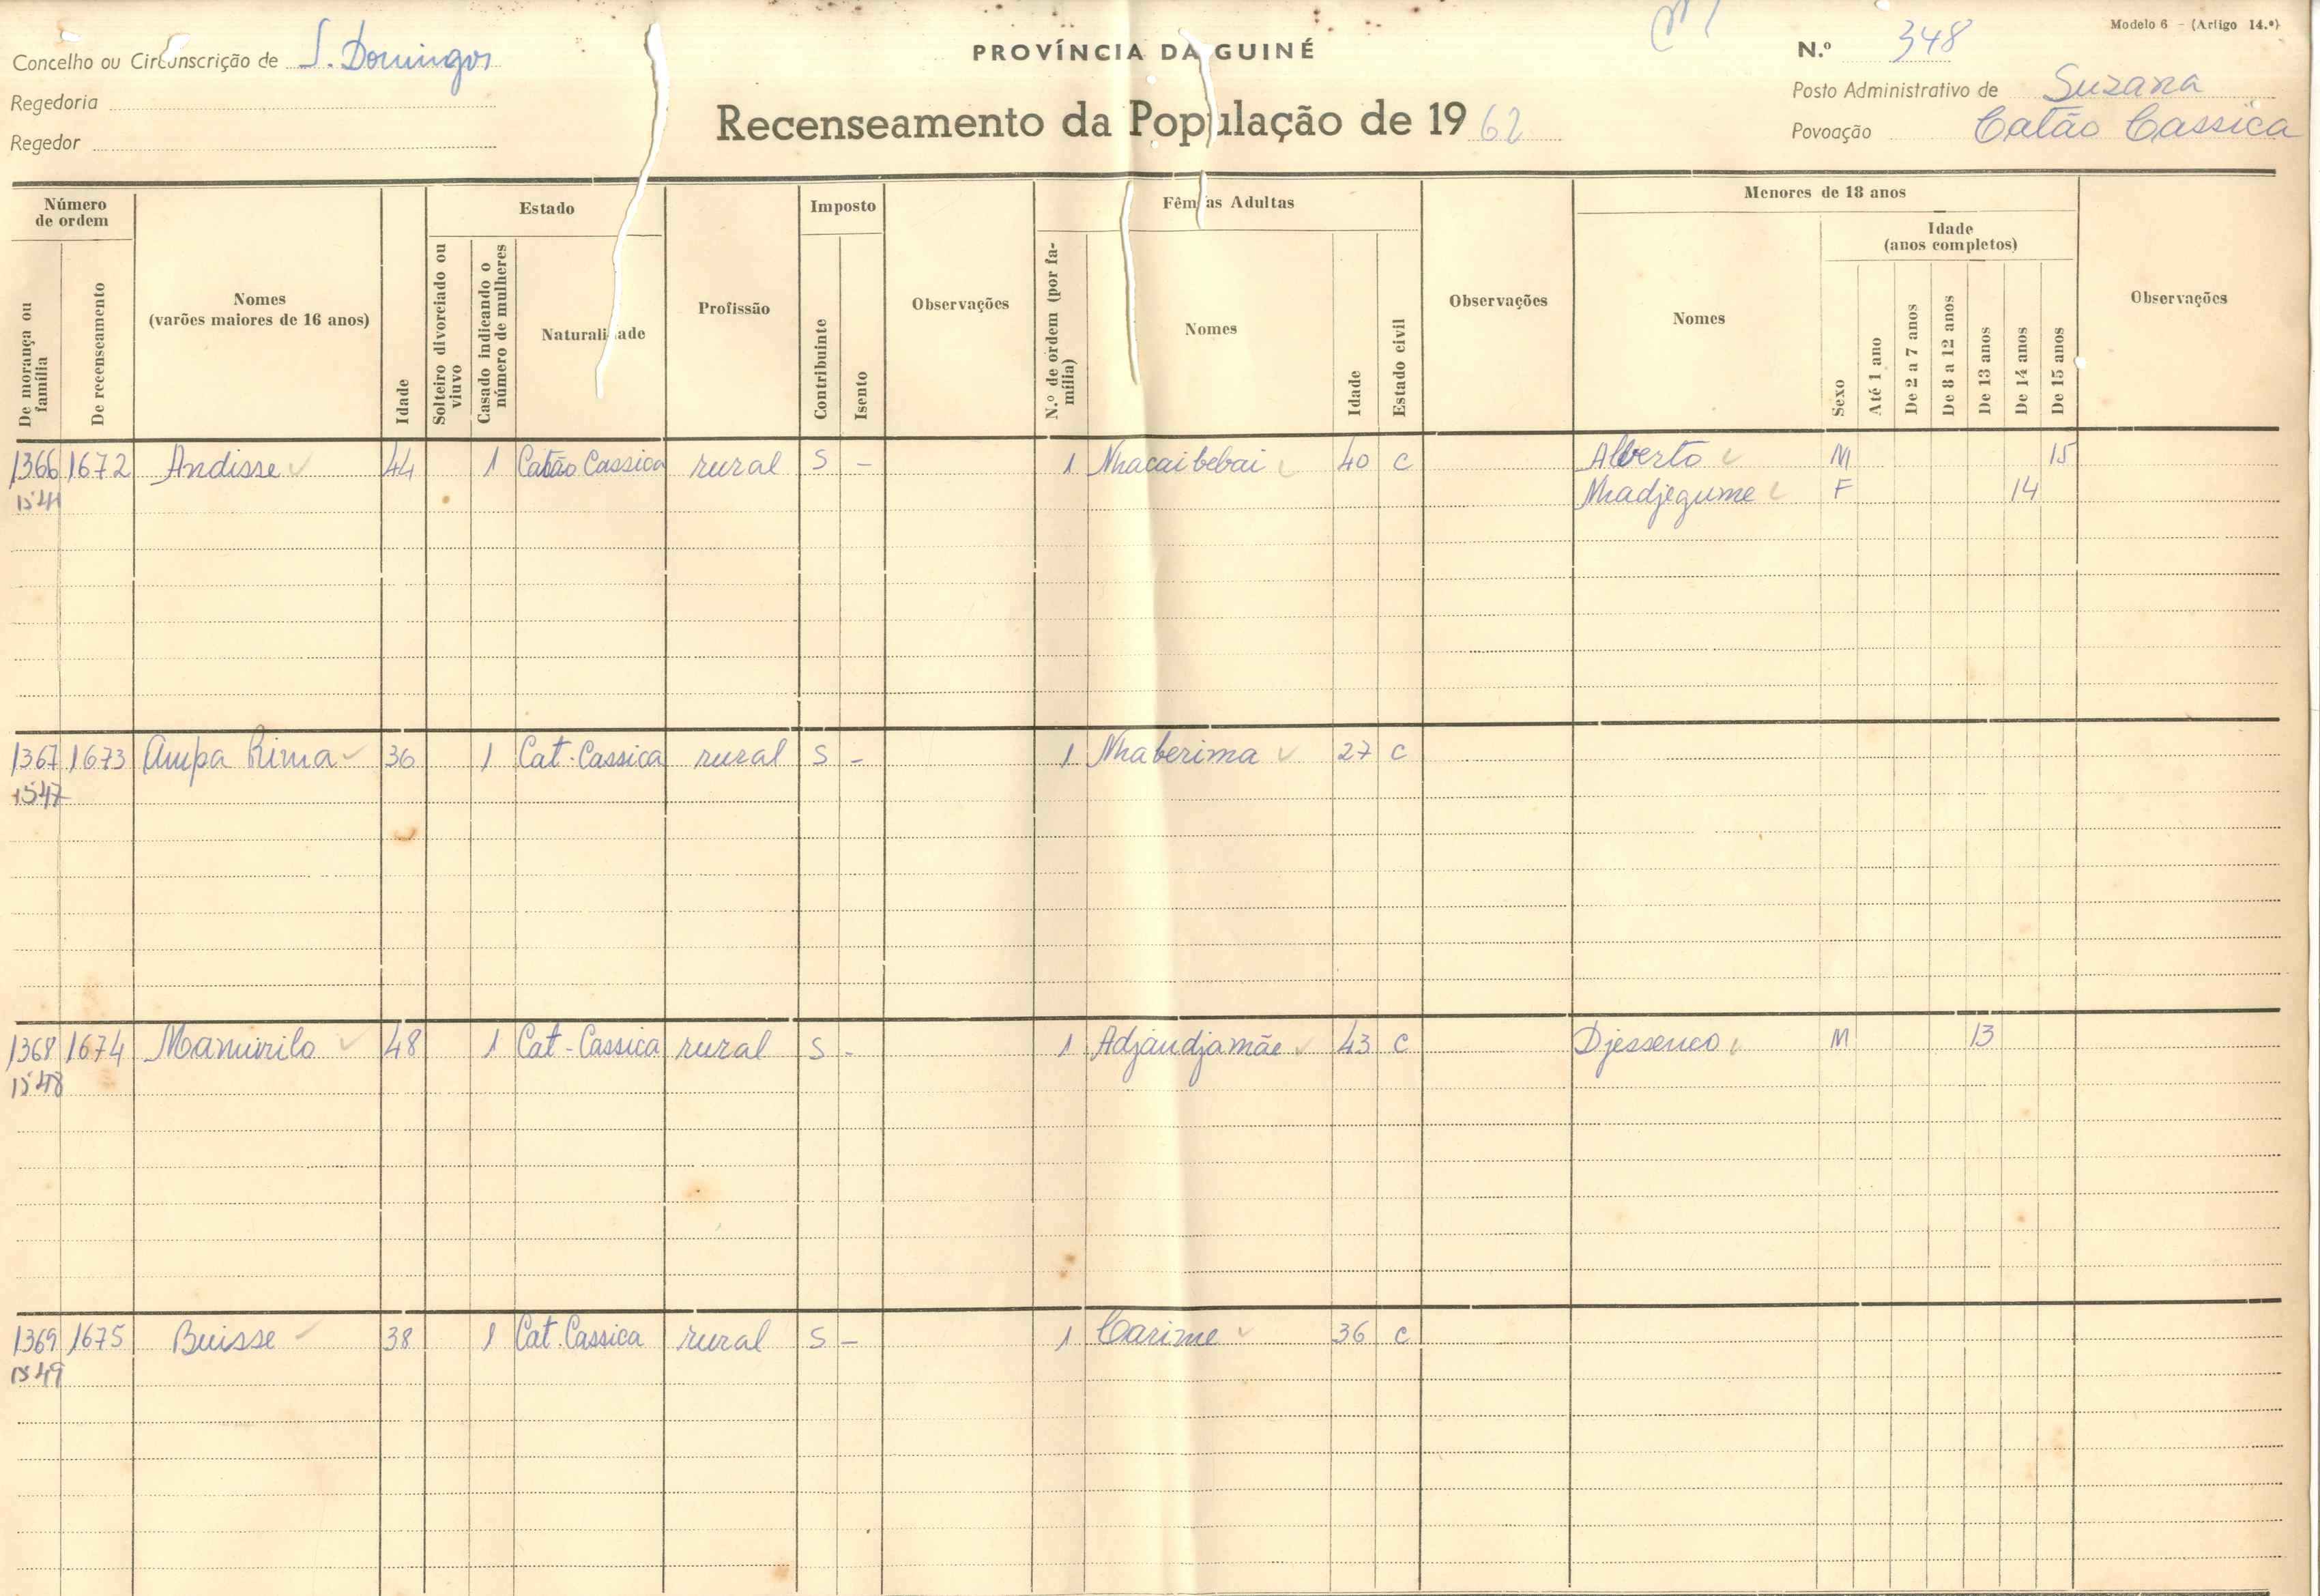 Modelo 6 - (Artigo 14.º)
Concelho ou Circunscrição de S. Domingos
PROVÍNCIA DA GUINÉ
N.º 348
Regedoria
Posto Administrativo de Suzana
Regedor
Recenseamento da População de 1962
Povoação Catão Cassica
Número de ordem
Estado
Imposto
Fêmeas Adultas
Menores de 18 anos
Idade (anos completos)
De morança ou família
De recenseamento
Nomes (varões maiores de 16 anos)
Idade
Solteiro divorciado ou viuvo
Casado indicando o número de mulheres
Naturalidade
Profissão
Contribuinte
Isento
Observações
N.º de ordem (por família)
Nomes
Idade
Estado civil
Observações
Nomes
Sexo
Até 1 ano
De 2 a 7 anos
De 8 a 12 anos
De 13 anos
De 14 anos
De 15 anos
Observações
1366 1672 Andisse 44 1 Catão Cassica rural S - 1 Nhacaibebai 40 C Alberto M 15
Nhadjegume F 14
1367 1673 Ampa Rima 36 1 Cat. Cassica rural S - 1 Nhaberima 27 C
1547
1368 1674 Mamurilo 48 1 Cat-Cassica rural S - 1 Adjandjamãe 43 C Djessenco M 13
1548
1369 1675 Buisse 38 1 Cat. Cassica rural S - 1 Carime 36 C
1549